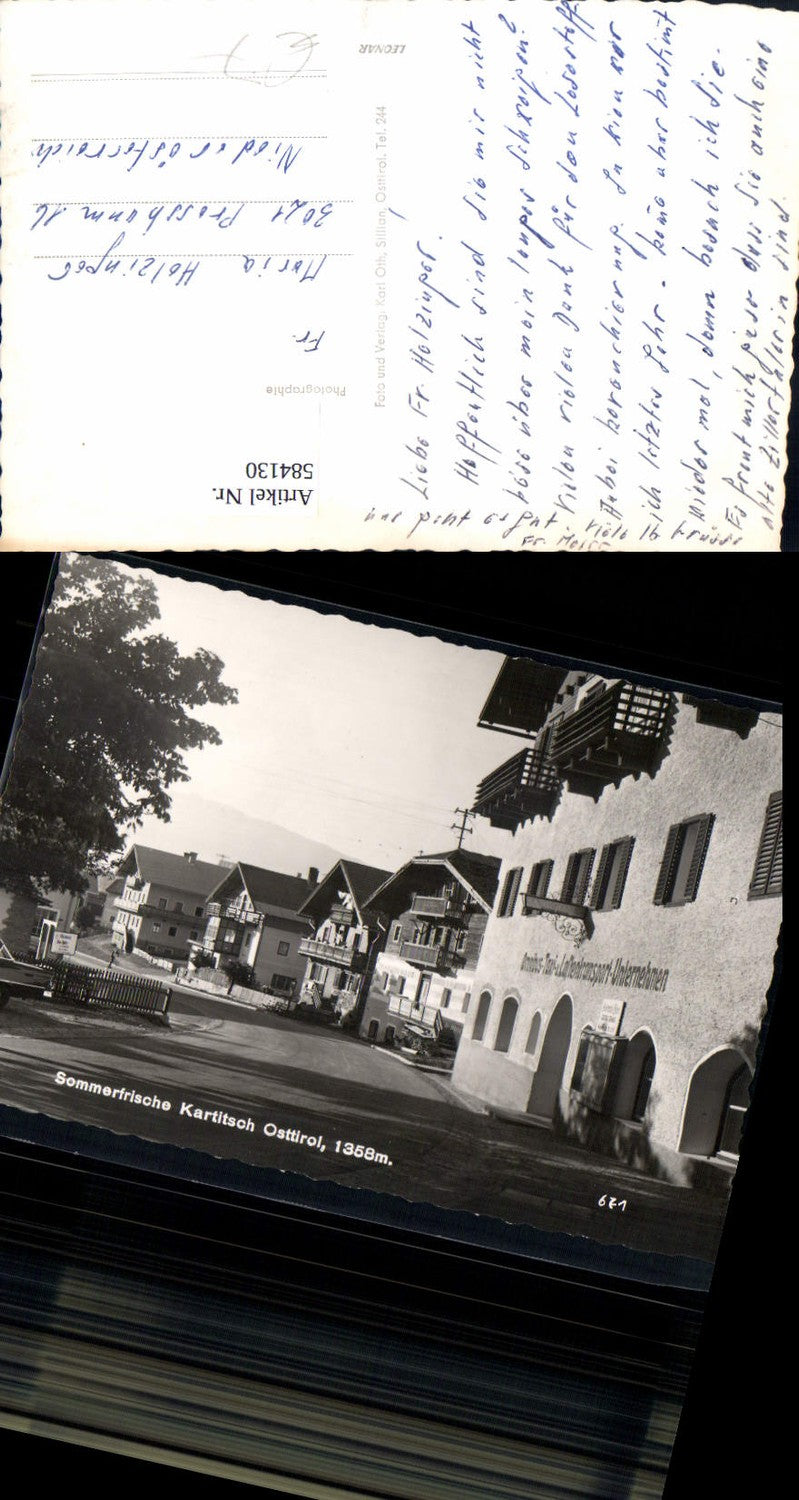 LEONAR
Foto und Verlag: Karl Oth, Sillian, Osttirol. Tel. 244
Photographie
Artikel Nr.
584130
Fr.
Maria Holzinger
3021 Pressbaum 16
Niederösterreich
Liebe Fr. Holzinger!
Hoffentlich sind Sie mir nicht
böse über mein langes Schweigen?
Vielen vielen Dank für den
ich letztes Jahr - komme aber bestimmt
wieder mal, dann besuch ich Sie.
Es freut mich dass Sie auch eine
alte Zillertalerin sind.
geht es gut
Viele lb Grüsse
Fr.
Omnibus-Taxi-u.Lastentransport-Unternehmen
Sommerfrische Kartitsch Osttirol, 1358m.
671